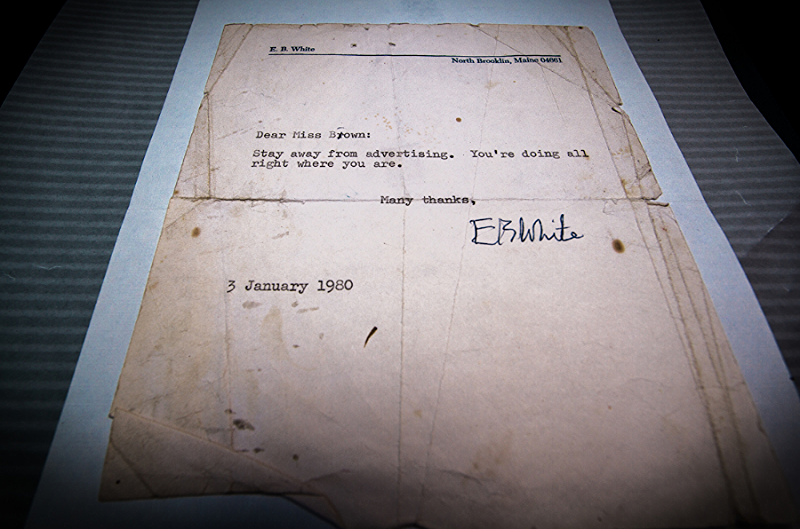 E. B. White
North Brooklin, Maine 04661
Dear Miss Brown:
Stay away from advertising. You're doing all
right where you are.
Many thanks,
EBWhite
3 January 1980